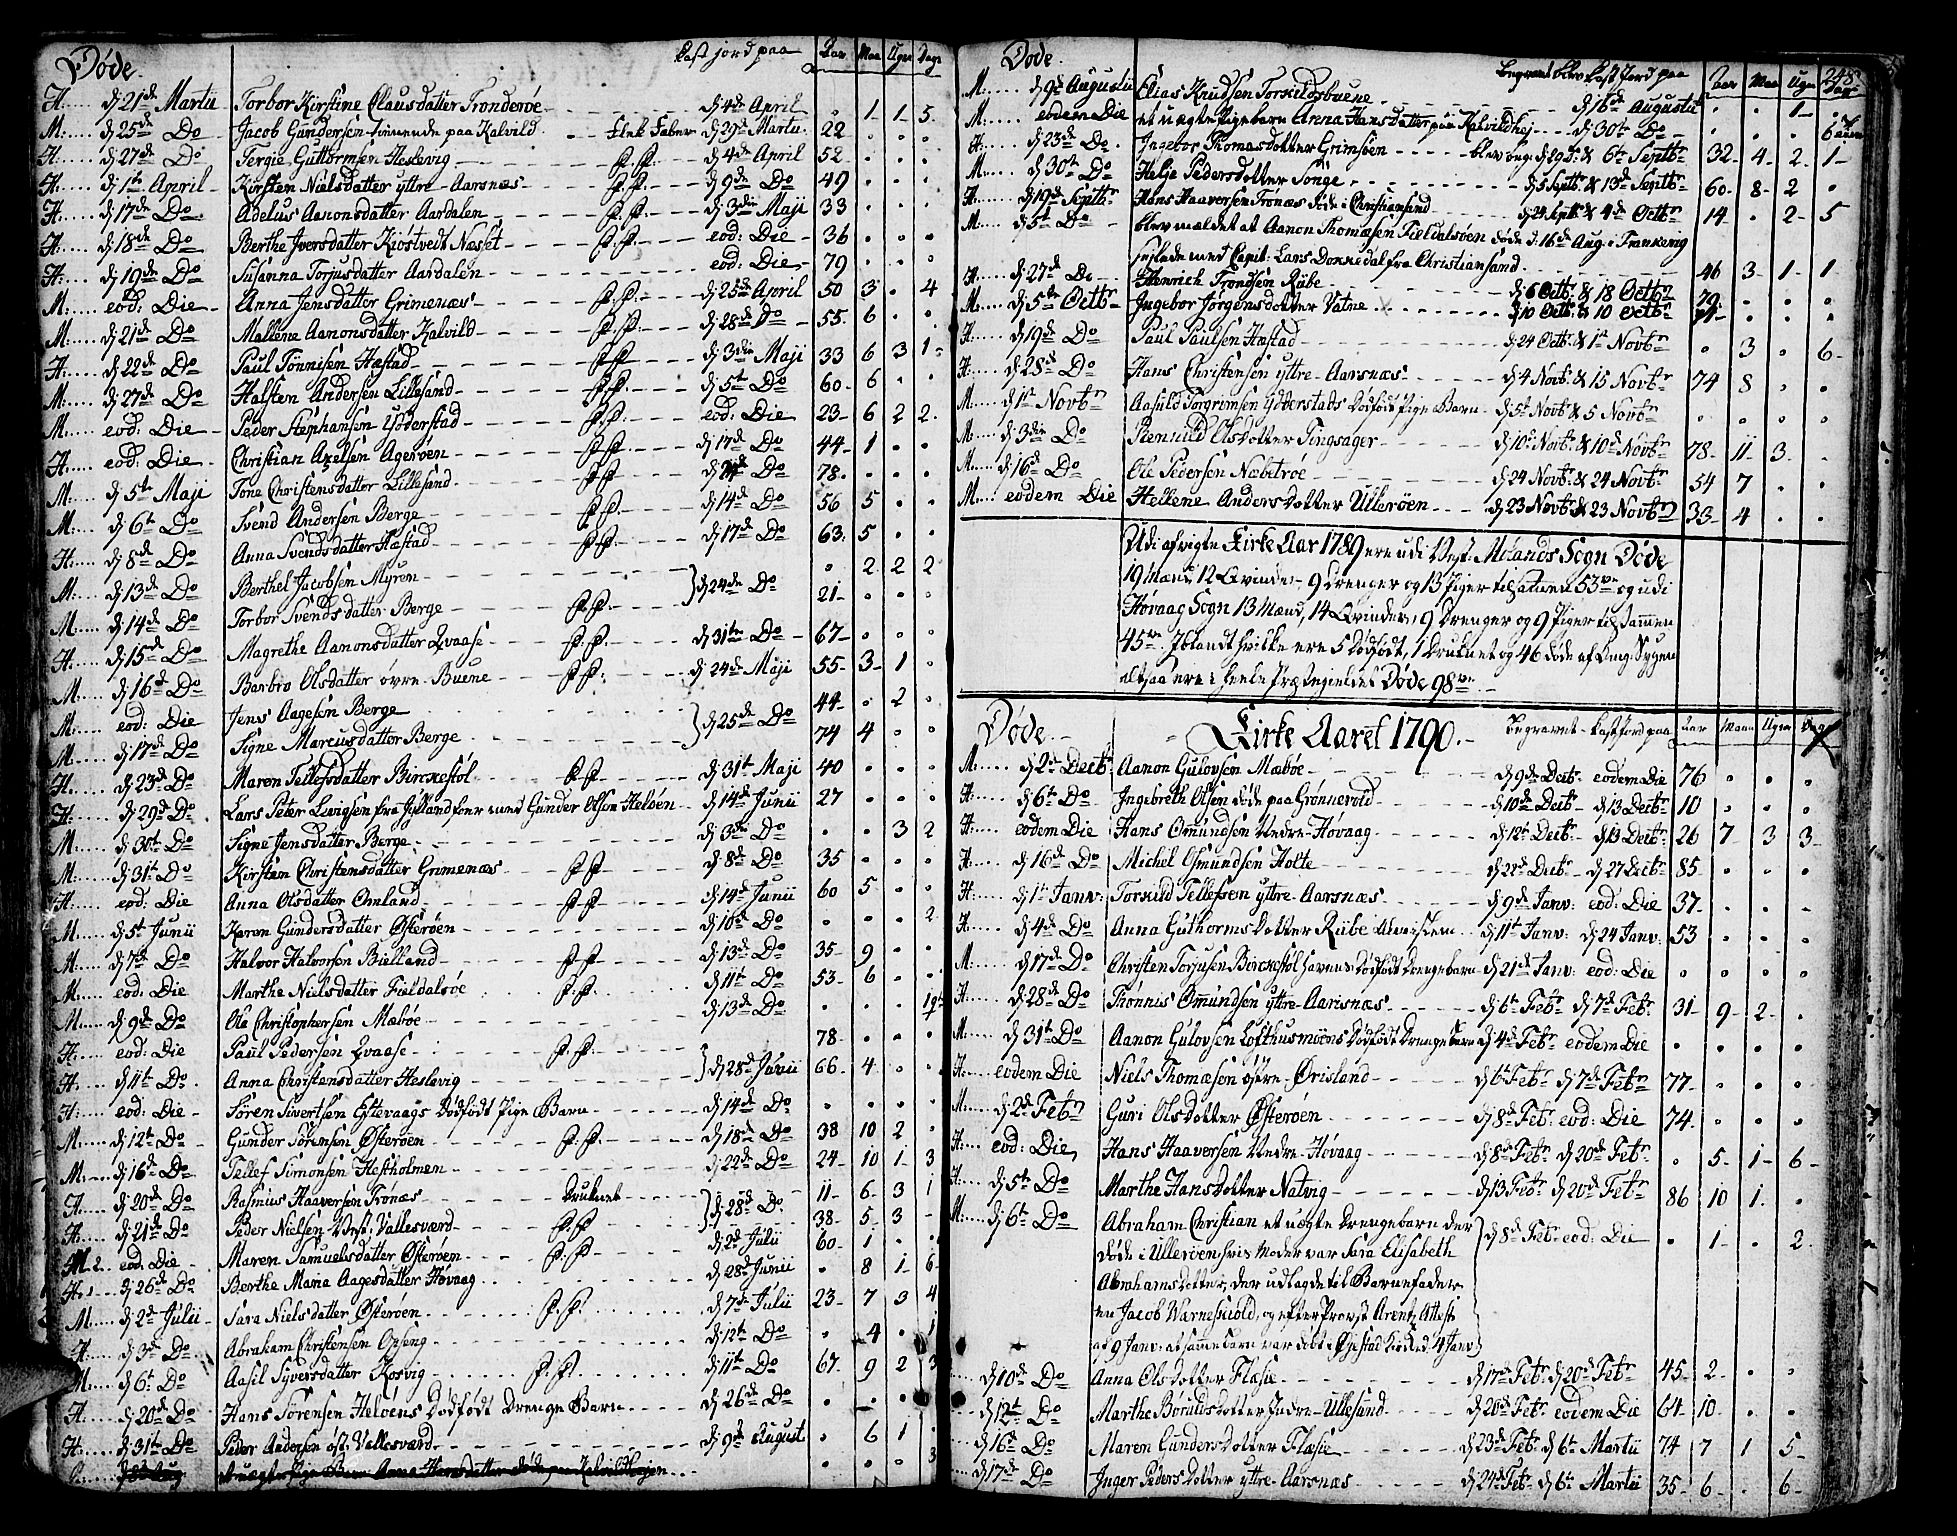 Døde. Kast jord paa Aar Maa Uger Dage
H. d 21de Martii Torbor Kirstine Clausdatter Tronderöe d 4de April . 1 1 5
M. d 25de Do Jacob Gundersen tienende paa Kalvild d 29de Martii 22 . . .
H. d 27de Do Tergie Guttormsen Heslevig d 4de April 52 . . .
H. d 1te April Kirsten Nielsdatter yttre Aarsnæs d 9de Do 49 . . .
H. d 17de Do Adelus Aanonsdatter Aardalen d 3die Maji 33 . . .
H. d 18de Do Berthe Iversdatter Kiöstvedt Næset eod: Die 36 . . .
H. d 19de Do Susanna Torjusdatter Aardalen eod: Die 79 . . .
M. eod: Die Anna Jensdatter Grimenæs d 25de April 50 3 . 4
M. d 21de Do Mallene Aanonsdatter Kalvild d 28de Do 55 6 . .
H. d 22de Do Paul Tönnisen Hæstad d 3die Maji 33 6 3 1
M. d 27de Do Halsten Andersen Lillesand d 5te Do 60 6 . .
M. eod: Die Peder Stephansen Ydderstad eod: Die 23 6 2 2
H. eod: Die Christian Axelsen Ageröen d 17de Do 44 1 . .
M. d 5te Maji Tone Christensdatter Lillesand Do 78 . . .
M. d 6te Do Svend Andersen Berge d 14de Do 56 5 . .
H. d 8de Do Anna Svendsdatter Hæstad d 17de Do 63 5 . .
M. d 13de Do Berthel Jacobsen Myren . 2 2 2
M. d 14de Do Torbor Svendsdatter Berge d 24de Do 21 . . .
H. d 15de Do Magrethe Aanonsdatter Qvaase d 31te Do 67 . . .
M. d 16de Do Barbro Olsdatter övre Buene d 24de Maji 55 3 1 .
M. eod: Die Jens Aagesen Berge 44 . 2 .
M. d 17de Do Signe Marcusdatter Berge d 25de Do 74 4 . .
H. d 23de Do Maren Tellefsdatter Birckestöl d 31te Maji 40 . . .
H. d 29de Do Lars Peter Lengsen fra Jylland foer med Gunder Olsen Helöen d 14de Junii 27 . . .
M. d 30te Do Signe Jensdatter Berge d 3de Do . . 3 2
M. d 31te Do Kirsten Christensdatter Grimenæs d 8de Do 35 . . .
H. eod: Die Anna Olsdatter Omland d 14de Junii 60 5 . .
M. d 5te Junii Karen Gundersdatter Østeröen d 10de Do . . . 2
M. d 7de Do Halvor Halvorsen Bielland d 13de Do 35 9 . .
H. eod: Die Marthe Nielsdatter Fieldalsöe d 11te Do 53 6 . .
M. d 9de Do Ole Christophersen Mæböe d 13de Do
H. eod: Die Paul Pedersen Qvaase 78 . . .
H. d 11te Do Anna Christensdatter Heslevig d 28de Junii 66 4 . .
H. eod: Die Sören Sivertsen Eftevaags Dödfödt Pige Barn d 14de Do . . . .
M. d 12te Do Gunder Sörensen Østeröen d 18de Do 38 10 2 .
M. d 16de Do Tellef Simonsen Hestholmen d 22de Do 24 10 1 3
H. d 20de Do Rasmus Haaversen Trönæs Druknet 11 6 3 1
H. d 21de Do Peder Nielsen Vest: Vallesværd d 28de Do 38 5 3
M. eod: Die Maren Samuelsdatter Østeröen d 2de Julii 60 1 . .
H. d 26de Do Berthe Maria Aagesdatter Høvaag d 28de Junii . 8 1 6
M. d 2de Julii Sara Nielsdatter Østeröen d 7de Julii 23 7 3 4
H. d 3de Do Abraham Christensen Opseng d 12te Do . 4 . 1
M. d 6te Do Aasil Syversdatter Kosvig d 11te Do 67 9 2 3
H. d 20de Do Hans Sörensen Helöens Dödfödt Drenge Barn d 26de Do . . . .
H. d 31te Do Peder Andersen öst: Vallesværd d 9de August . 6 1 .

Døde. Begravet blev Kast Jord paa Aar Maa Uger Dage 248
M. d 9de Augustii Elias Knudsen Torkildsbuene d 16de Augustii . . 1 .
M. eodem Die et uægte Pigebarn Anna Hansdatter paa Kalvildhej d 30te Do . . . 6
H. d 23de Do Ingebor Thomasdotter Grimsöen d 29 & 6te Septbr 32 4 2 1
M. d 30te Do Helje Pedersdotter Songe d 5 Septb: & 13de Septbr 60 8 2 .
H. d 19de Septbr Hans Haaversen Trönæs döde i Christiansand d 24 Septb & 4de Octbr 14 . 2 5
M. d 5te Do blev mældet at Aanon Thomæsen Fieldalsöen döde d: 16de Aug: i Frankerig
seglede med Capit: Lars Dokkedal fra Christiansand 46 3 1 1
H. d 27de Do Henrich Trondsen Ribe d 6 Octb: & 18 Octbr 79 . . .
M. d 5te Octbr Ingebor Jörgensdotter Vatne d 10 Octb: & 10 Octbr . . .
H. d 19de Do Paul Paulsen Hæstad d 24 Octb: & 1te Novbr . 3 . 6
H. d 28de Do Hans Christensen yttre Aarsnæs d 4 Novb: & 15 Novbr 74 8 . .
M. d 1te Novbr Aasuld Torgrimsen Ydderstads Dödfödt Pige Barn d 5te Novb: & 5 Novbr . . . .
M. d 3die Do Rennild Olsdotter Tingsager d 10de Novb: & 10de Novbr 78 11 3 .
M. d 16de Do Ole Pedersen Næbetröe d 24 Novb: & 24 Novbr 54 7 . .
M. eodem Die Hellene Andersdotter Ulleröen d 23 Novb: & 23 Novbr 33 4 . .
Udi afvigte Kirke Aar 1789 ere udi Vest: Molands Sogn Døde
19 Mænd, 12 Qvinder, 9 Drenger og 13 Piger tilsammen 53 og udi
Høvaag Sogn 13 Mænd, 14 Qvinder, 9 Drenger og 9 Piger tilsammen
45. Iblandt hvilke ere 5 Dödfödt, 1 Druknet og 46 döde af Svagen
altsaa ere i heele Præstegieldet Døde 98
Døde. Kirke Aaret 1790. Begravet Kast Jord paa Aar Maan Uger Dage
M. d 2de Decbr Aanon Gulovsen Mæböe d 9de Decbr eodem Die 76 . . .
H. d 6te Do Ingebreth Olsen döde paa Grönnevold d 10de Decbr d 13 Decbr 10 . . .
H. eodem Die Hans Omundsen Nedre Høvaag d 12te Decbr d 13 Decbr 26 7 3 3
H. d 16de Do Michel Osmundsen Holte d 22de Decbr d 27 Decbr 85 . . .
H. d 1te Janv: Torkild Tellefsen yttre Aarsnæs d 9de Janv: eod: Die 37 . . .
H. d 4de Do Anna Guthormsdotter Ribe d 11te Janv: d 24 Janv: 53 . . .
M. d 17de Do Christen Torjusen Birckestöl hans Dödfödt Drengebarn d 21de Janv: eod: Die . . . .
H. d 28de Do Thönnis Omundsen yttre Aarisnæs d 6te Febr d 7de Febr 31 9 2 .
M. d 31te Do Aanon Gulovsen Lofthusmoens Dödfödt Drengebarn d 4de Febr eodem Die . . . .
H. eodem Die Niels Thomæsen östre Ørisland d 6te Febr d 7de Febr 77 . . .
M. d 2de Febr Guri Olsdotter Østeröen d 8de Febr eod: Die 74 . . .
H. eod: Die Hans Haaversen Nedre Høvaag d 8de Febr d 20de Febr . 5 1 6
H. d 5te Do Marthe Hansdotter Natvig d 13 Febr d 20de Febr 86 10 1 .
M. d 6te Do Abraham Christian et uægte Drengebarn der d 8de Feb: eod: Die . 1 . 2
döde i Ulleröen hvis Moder var Sara Elisabeth
Abrahamsdotter, der udlagde til Barnefader
en Jacob Warneskiold, og efter Provst Arentz Attest
af 9 Janv: at samme barn var döbt i Øjestad Kirke d. 4 Janv
d 10de Do Anna Olsdotter Flasie d 17de Feb: d 20de Febr 45 2 . .
d 12te Do Marthe Börulds dotter Indre Ullesand d 20de Febr eodem Die 64 10 .
d 16de Do Maren Gundersdotter Flasie d 23de Febr d 6te Martii 74 7 1 5
d 17de Do Inger Pedersdotter yttre Aarsnæs d 24de Febr d 6te Martii 35 6 . 6